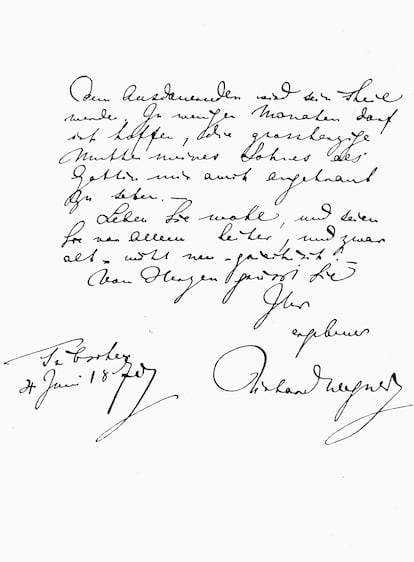 Dem Ausdauernden wird sein Theil
werde. In wenigen Monaten darf
ich hoffen, die grossherzige
Mutter meines Sohnes als
Gattin mir auch angetraut
zu sehen. –
Leben Sie wohl, und seien
Sie vor allem heiter, und zwar
alt – nicht neu-griechisch!
Von Herzen grüsst Sie
Ihr
ergebener
Richard Wagner
Tribschen
4 Juni 1870